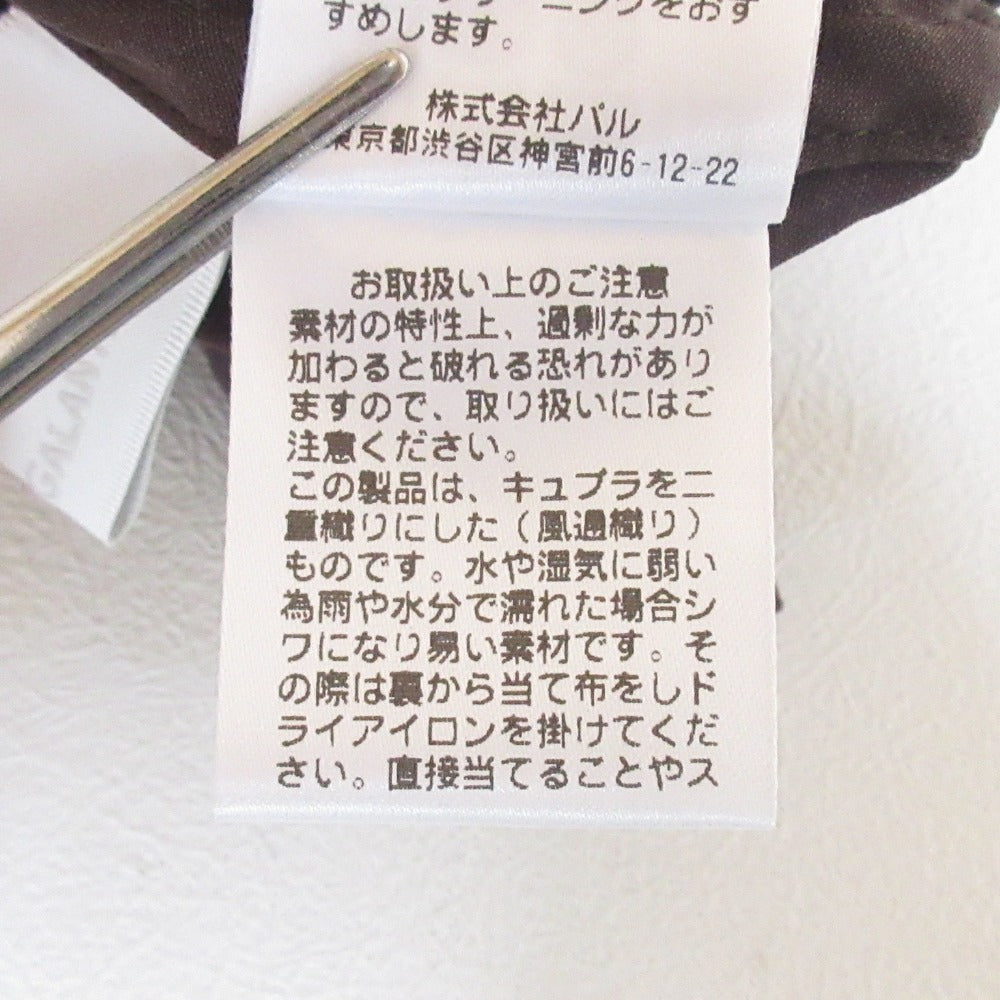 ニングをおす
すめします。
株式会社パル
東京都渋谷区神宮前6-12-22
お取扱い上のご注意
素材の特性上、過剰な力が
加わると破れる恐れがあり
ますので、取り扱いにはご
注意ください。
この製品は、キュプラを二
重織りにした（風通織り）
ものです。水や湿気に弱い
為雨や水分で濡れた場合シ
ワになり易い素材です。そ
の際は裏から当て布をしド
ライアイロンを掛けてくだ
さい。直接当てることやス
GALAN